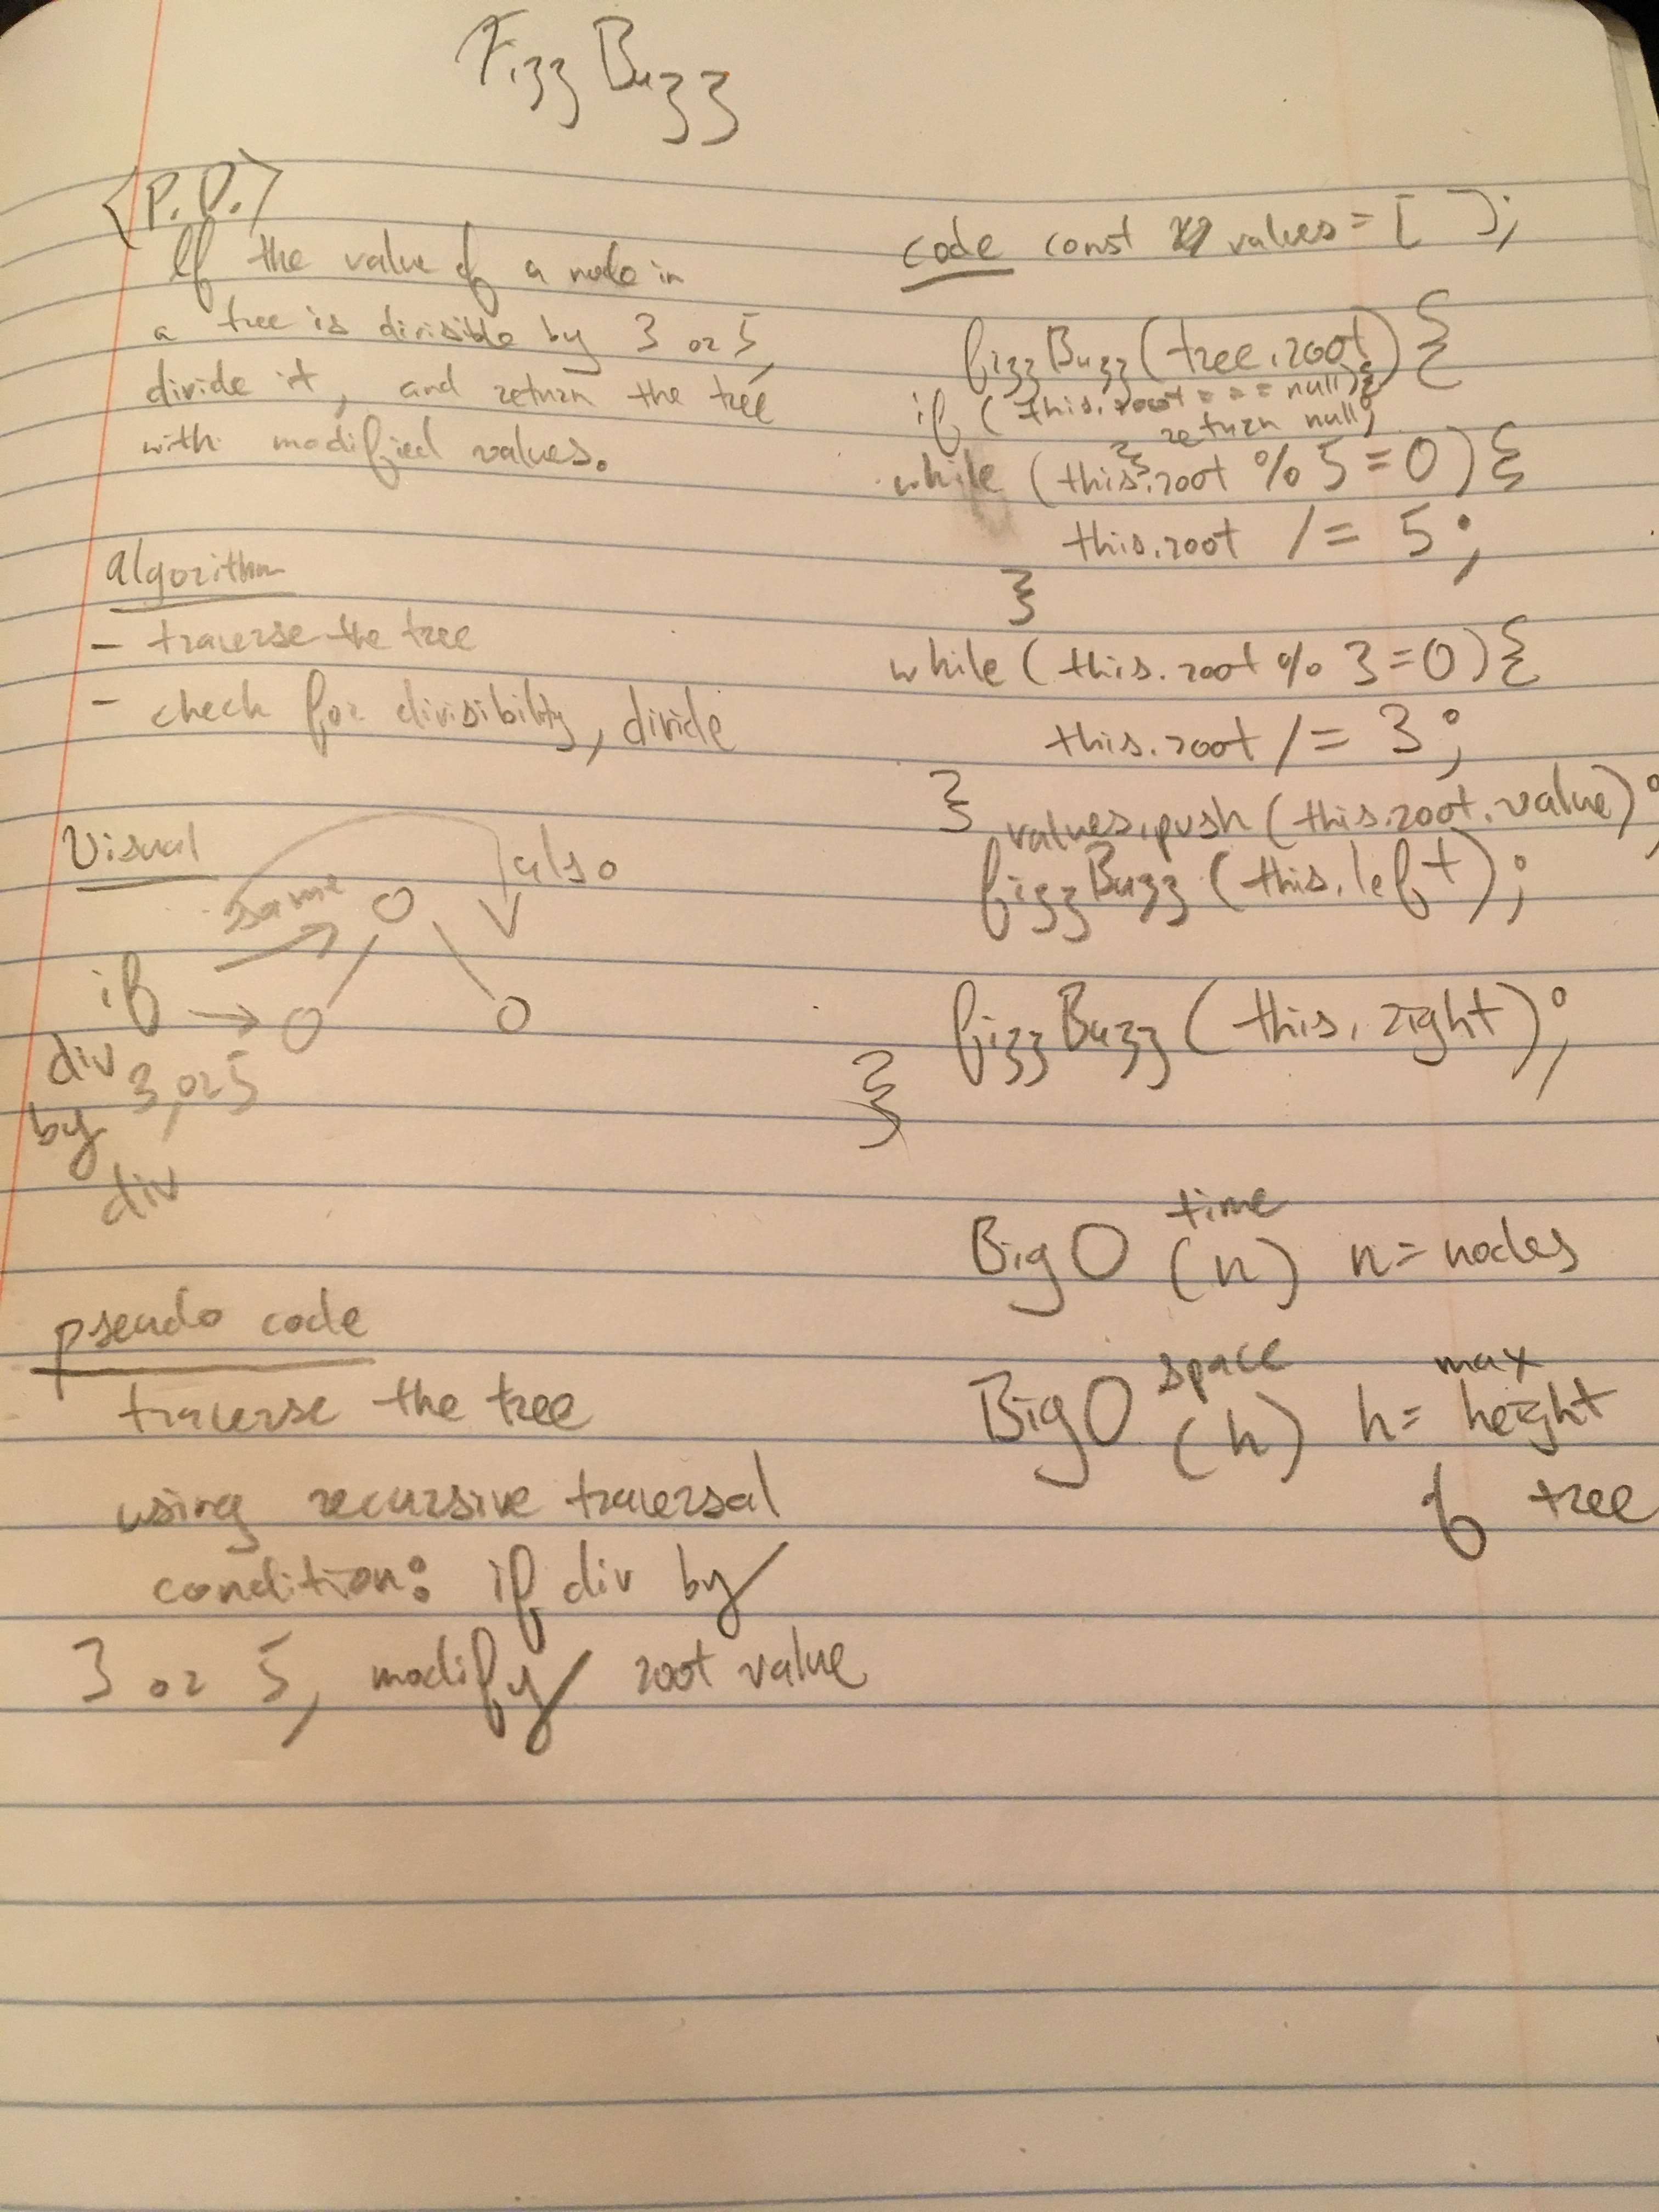 FizzBuzz
<P.D.>
If the value of a node in
a tree is divisible by 3 or 5,
divide it, and return the tree
with modified values.
algorithm
- traverse the tree
- check for divisibility, divide
Visual
same
also
if
div
by 3, or 5
div
pseudo code
traverse the tree
using recursive traversal
condition: if div by
3 or 5, modify root value
code const values = [ ];
fizzBuzz(tree.root) {
if (this.root === null){
return null;
}
while (this.root % 5 = 0) {
this.root /= 5;
}
while (this.root % 3 = 0) {
this.root /= 3;
} values.push(this.root.value);
fizzBuzz(this.left);
fizzBuzz(this.right);
}
time
Big O (n) n = nodes
space
Big O (h) h = max height
of tree